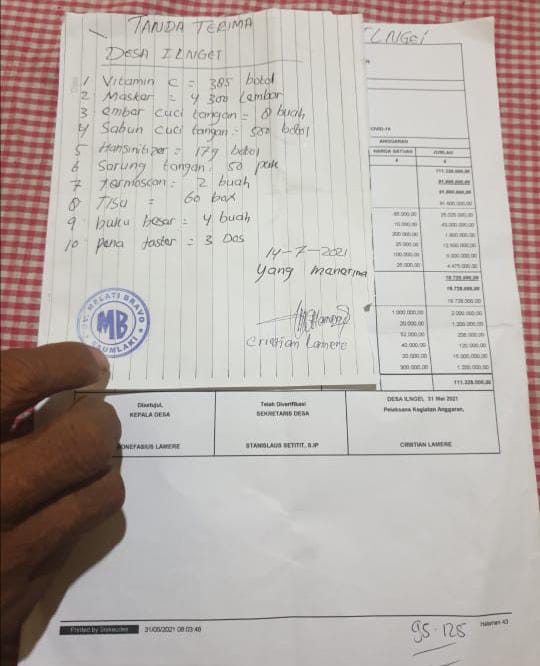 TANDA TERIMA
DESA ILNGEI
1 Vitamin C = 385 botol
2 Masker = 4 300 Lembar
3 ember cuci tangan = 8 buah
4 Sabun cuci tangan = 500 botol
5 Hansinitizer = 179 botol
6 Sarung tangan = 50 pak
7 tarmoscan = 2 buah
8 Tisu = 60 box
9 buku besar = 4 buah
10 pena faster = 3 Dos
14-7-2021
Yang manarima
Cristian Lamere
MELATI BRAVO
MB
SAUMLAKI
ILNGEI
COVID-19
ANGGARAN
HARGA SATUAN JUMLAH
4 5
111.328.000,00
91.600.000,00
65.000,00 25.025.000,00
10.000,00
200.000,00
25.000,00 12.500.000,00
100.000,00
25.000,00 4.475.000,00
19.728.000,00
19.728.000,00
19.728.000,00
1.000.000,00 2.000.000,00
20.000,00 1.200.000,00
52.000,00 208.000,00
40.000,00 120.000,00
300.000,00
111.328.000,00
DESA ILNGEI, 31 Mei 2021
Disetujui, Telah Diverifikasi Pelaksana Kegiatan Anggaran,
KEPALA DESA SEKRETARIS DESA
BONEFASIUS LAMERE STANISLAUS SETITIT, S.IP CRISTIAN LAMERE
Printed by Siskeudes 31/05/2021 08:03:48 Halaman 43
95-125